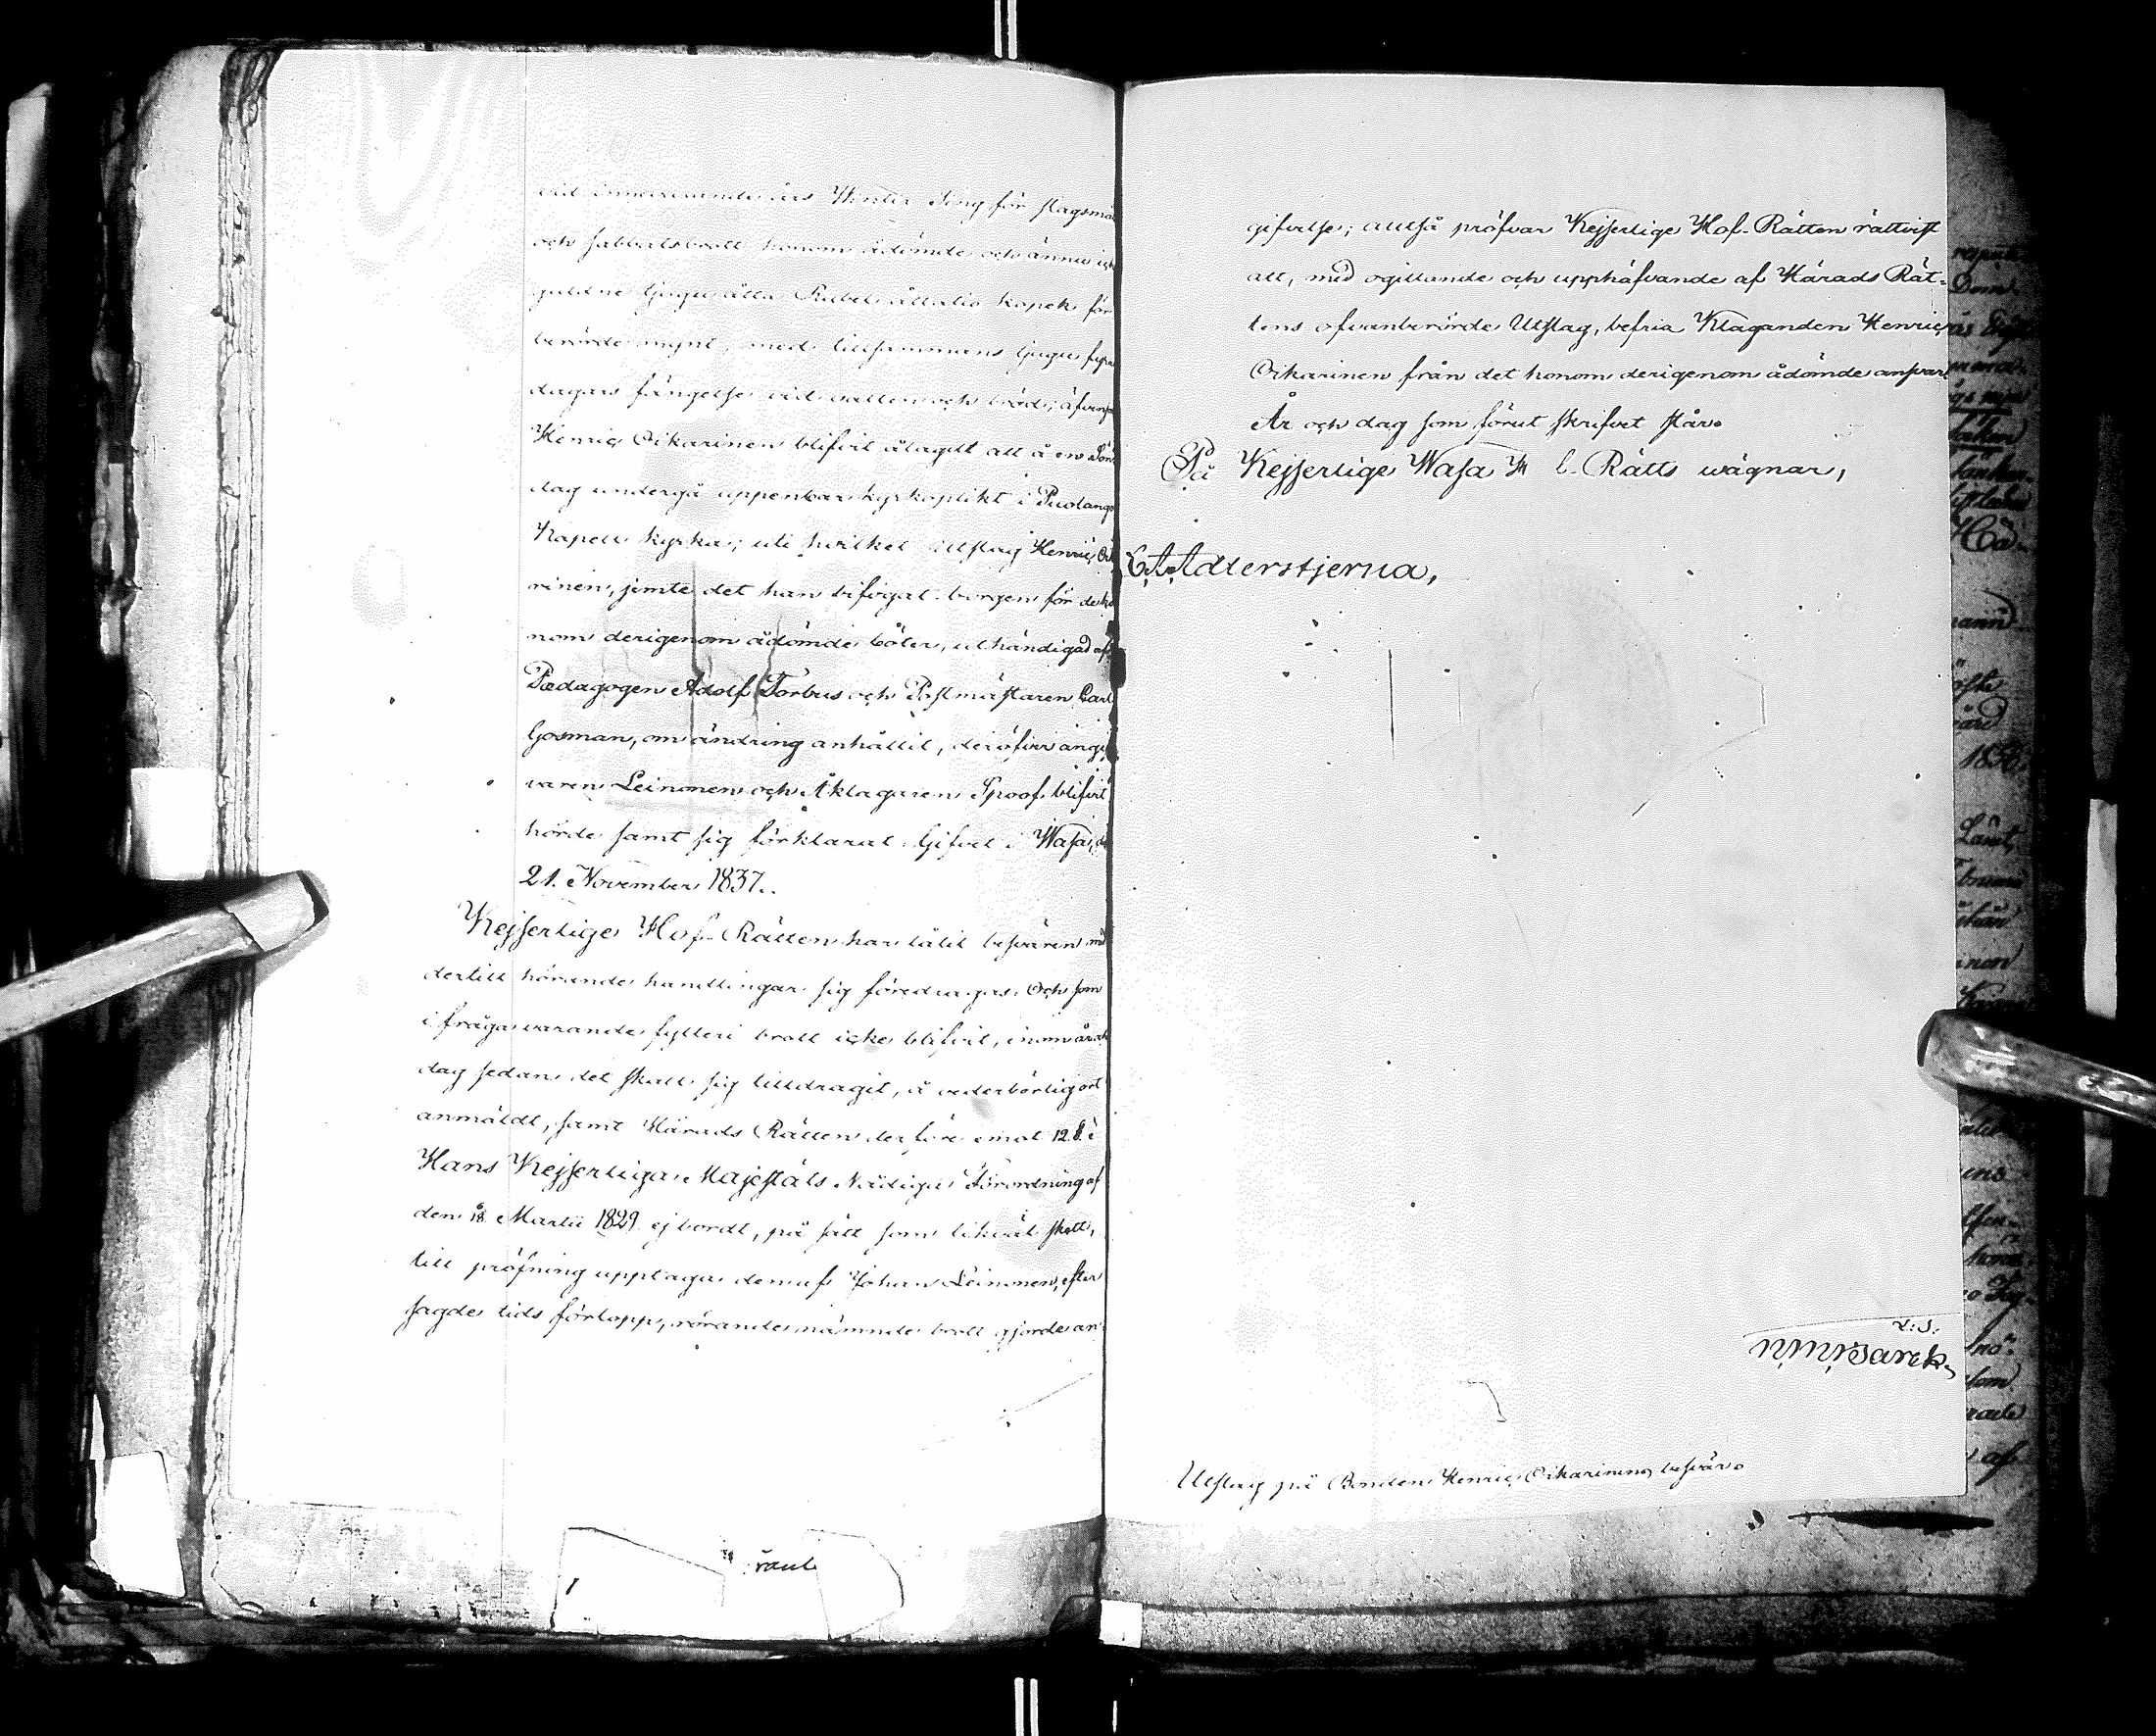 vid innevarande års Winter Ting för slagsmå
och sabbatsbrott honom ådömde och ännu ick
guldne tjugu åtta Rubel åttatio kopek för
berörde mynt, med tillsammans tjugu fyra
dagars fängelse vid vatten och bröd; äfvensom
Henric Oikarinen blifvit ålagdt att å en Sön
dag undergå uppenbar kyrkoplikt i Puolango
Kapell kyrka; uti hvilket Utslag Henric Oika
rinen, jemte det han bifogat borgen för de ho
nom derigenom ådömde böter, uthändigad af
Pædagogen Adolf Forbus och Postmästaren Carl
Gosman, om ändring anhållit, deröfver angif
varen Leinonen och Åklagaren Spoof blifvit
hörde samt sig förklarat. Gifvet i Wasa, d
21. November 1837.
Kejserlige Hof-Rätten har låtit besvären med
dertill hörande handlingar sig föredragas. Och som
i fråga varande fylleri brott icke blifvit, inom år och
dag sedan det skall sig tilldragit, å vederbörlig ort
anmäldt, samt Härads Rätten derföre emot 12.§. i
Hans Kejserliga Majestäts Nådiga Förordning af
den 18 Martii 1829 ej bordt, på sätt som likväl skett,
till pröfning upptaga den af Johan Leinonen, efter
sagde tids förlopp, rörande nämnde brott gjorde an-
gifvelse; alltså pröfvar Kejserlige Hof-Rätten rättvist
att, med ogillande och upphäfvande af Härads Rät-
tens ofvanberörde Utslag, befria Klaganden Henric
Oikarinen från det honom derigenom ådömde ansvar
År och dag som förut skrifvet står.
På Kejserlige Wasa H Rätts wägnar,
C. A. Adlerstjerna,
L.S.
Utslag på Bonden Henric Oikarinens besvär.